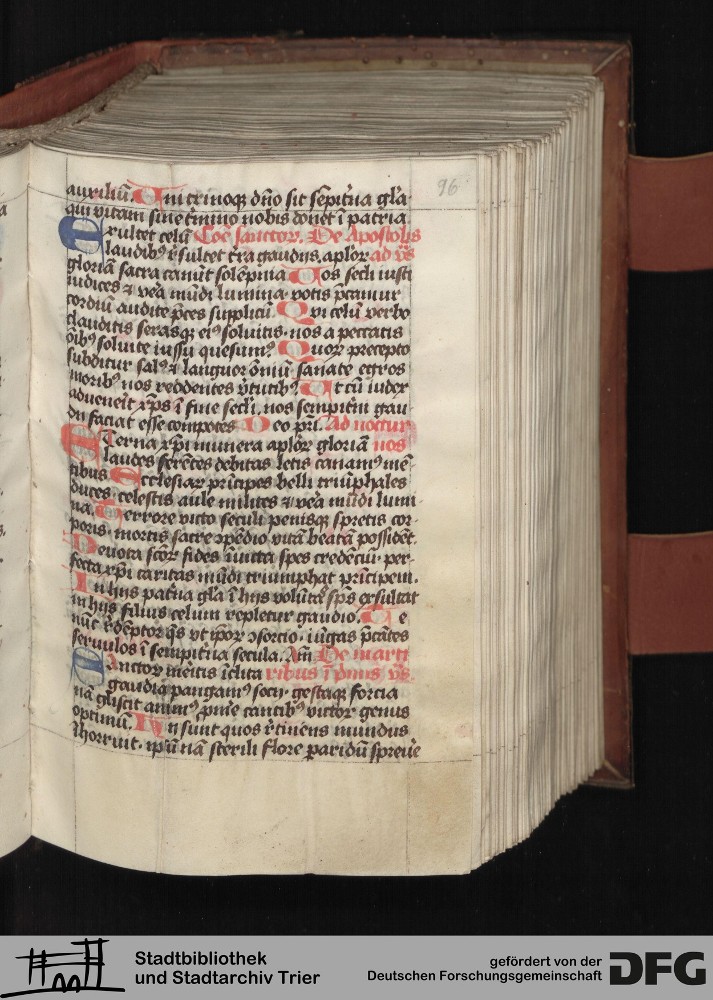 96
auxiliū. Uni trinoqz dn̄o sit sēpit̄na gl̄a
qui vitam sine t̄mino nobis donet ī patria
Exultet celū Cōe sanctor. De Apostolis
laudibꝰ r̄sultet t̄ra gaudiis, aplor̄ ad vs̄
gloriam sacra canūt solēpnia Uos secli iusti
iudices ⁊ ve̅a mūdi lumina votis p̄camur
cordiū audite p̄ces supplicū Qui celū verbo
clauditis serasqz eiꝰ soluitis nos a peccatis
oībꝰ soluite iussu quesumꝰ Quor̄ precepto
subditur salꝰ ⁊ languor ōmiū sanate egros
moribꝰ nos reddentes v̄tutibꝰ Ut cū iudex
adueneīt xp̄s ī fine secli, nos sempit̄ni gau
dii faciat esse compotes Deo pri. Ad noctur
Eterna xp̄i munera aplor̄ gloriā nos
laudes ferētes debitas letis canamꝰ mē-
tibus Ecclesiar̄ prīcipes belli triūphales
duces, celestis aule milites ⁊ ve̅a mūdi lumi
na. Terrore victo seculi penisqz spretis cor
poris, mortis sacre ꝯpēdio vitā beātā possidēt
Deuota scōr̄ fides īuicta spes credēciū, per-
fecta xp̄i caritas mūdi triumphat prīcipem.
In hijs patna gl̄a ī hijs volūtꝰ sp̄s exsultat
in hijs filius celum repletur gaudio. Te
nūc r̄dēptor q̄s vt ip̄or ꝯsortio, iūgas p̄cātes
seruulos ī sempit̄na secula. Am̄ De marti
Sanctor mēitis īclita ribus ī p̄mis vs̄
gaudia pangamꝰ socij gestaqz forcia
nā gliscit animꝰ p̄me cantibꝰ victor genus
optimū. Hij sunt quos r̄tinens mundus
īhorruit, ip̄ū nā sterili flore paridū spreue̅
Stadtbibliothek
und Stadtarchiv Trier
gefördert von der
Deutschen Forschungsgemeinschaft
DFG